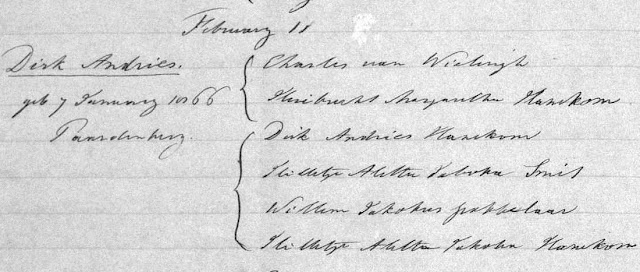 February 18
Dirk Andries.
geb 7 January 1866
Paardenberg.
Charles van Wielingh
Huibrecht Margaretha Hanekom
Dirk Andries Hanekom
Hilletje Aletta Jakoba Smit
Willem Jakobus
Hilletje Aletta Jakoba Hanekom